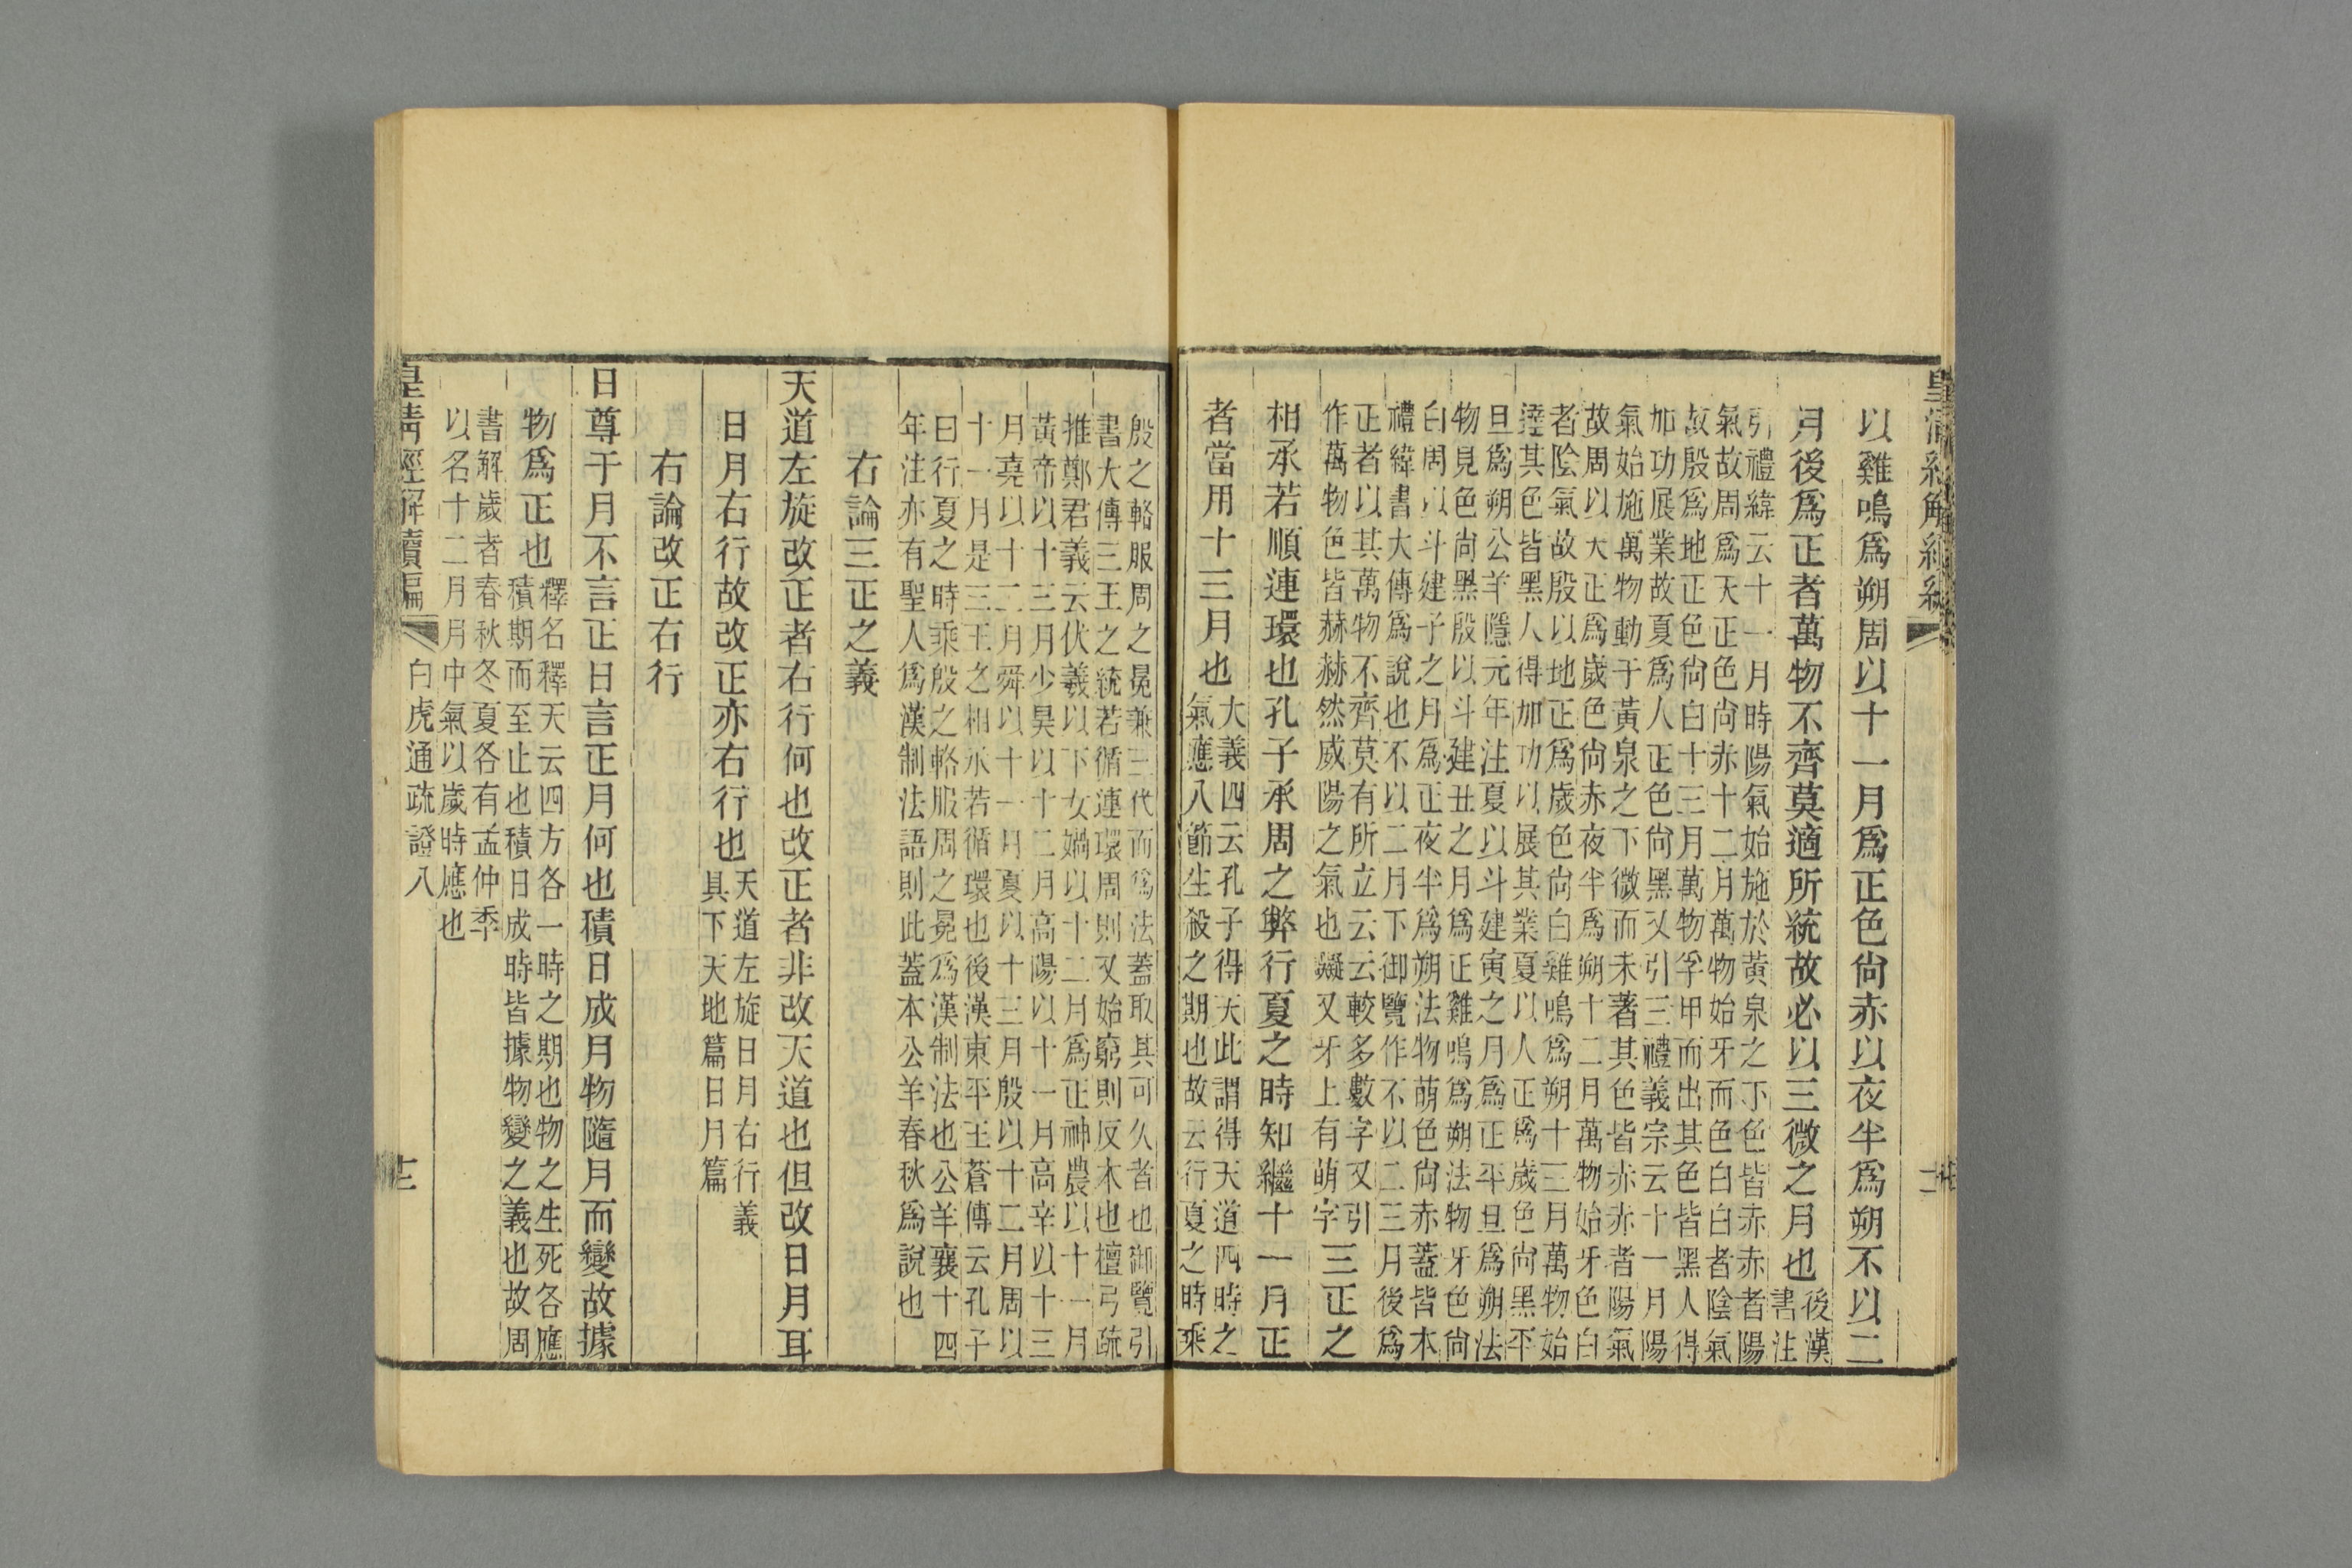 皇清經解續編
以雞鳴爲朔周以十一月爲正色尙赤以夜半爲朔不以二
月後爲正者萬物不齊莫適所統故必以三微之月也後漢
書注
引禮緯云十一月時陽氣始施於黃泉之下色皆赤赤者陽
氣故周爲天正色尙赤十二月萬物始牙而色白白者陰氣
故殷爲地正色尙白十三月萬物孚甲而出其色皆黑人得
加功展業故夏爲人正色尙黑又引三禮義宗云十一月陽
氣始施萬物動于黃泉之下微而未著其色皆赤赤者陽氣
故周以天正爲歲色尙赤夜半爲朔十二月萬物始牙色白
者陰氣故殷以地正爲歲色尙白雞鳴爲朔十三月萬物始
達其色皆黑人得加功以展其業夏以人正爲歲色尙黑平
旦爲朔公羊隱元年注夏以斗建寅之月爲正平旦爲朔法
物見色尙黑殷以斗建丑之月爲正雞鳴爲朔法物牙色尙
白周以斗建子之月爲正夜半爲朔法物萌色尙赤蓋皆本
禮緯書大傳爲說也不以二月下御覽作不以二三月後爲
正者以其萬物不齊莫有所立云云較多數字又引
作萬物色皆赫赫然威陽之氣也礙又牙上有萌字三正之
相承若順連環也孔子承周之弊行夏之時知繼十一月正
者當用十三月也大義四云孔子得天此謂得天道四時之
氣應八節生殺之期也故云行夏之時乘
殷之輅服周之冕兼三代而爲法蓋取其可久者也御覽引
書大傳三王之統若循連環周則又始窮則反本也檀弓疏
推鄭君義云伏羲以下女媧以十二月爲正神農以十一月
黃帝以十三月少昊以十二月高陽以十一月高辛以十三
月堯以十二月舜以十一月夏以十三月殷以十二月周以
十一月是三王之相承若循環也後漢東平王蒼傳云孔子
曰行夏之時乘殷之輅服周之冕爲漢制法也公羊襄十四
年注亦有聖人爲漢制法語則此蓋本公羊春秋爲說也
右論三正之義
天道左旋改正者右行何也改正者非改天道也但改日月耳
日月右行故改正亦右行也天道左旋日月右行義
具下天地篇日月篇
右論改正右行
日尊于月不言正日言正月何也積日成月物隨月而變故據
物爲正也釋名釋天云四方各一時之期也物之生死各應
積期而至止也積日成時皆據物變之義也故周
書解歲者春秋冬夏各有孟仲季
以名十二月月中氣以歲時應也
皇清經解續編
白虎通疏證八
十二